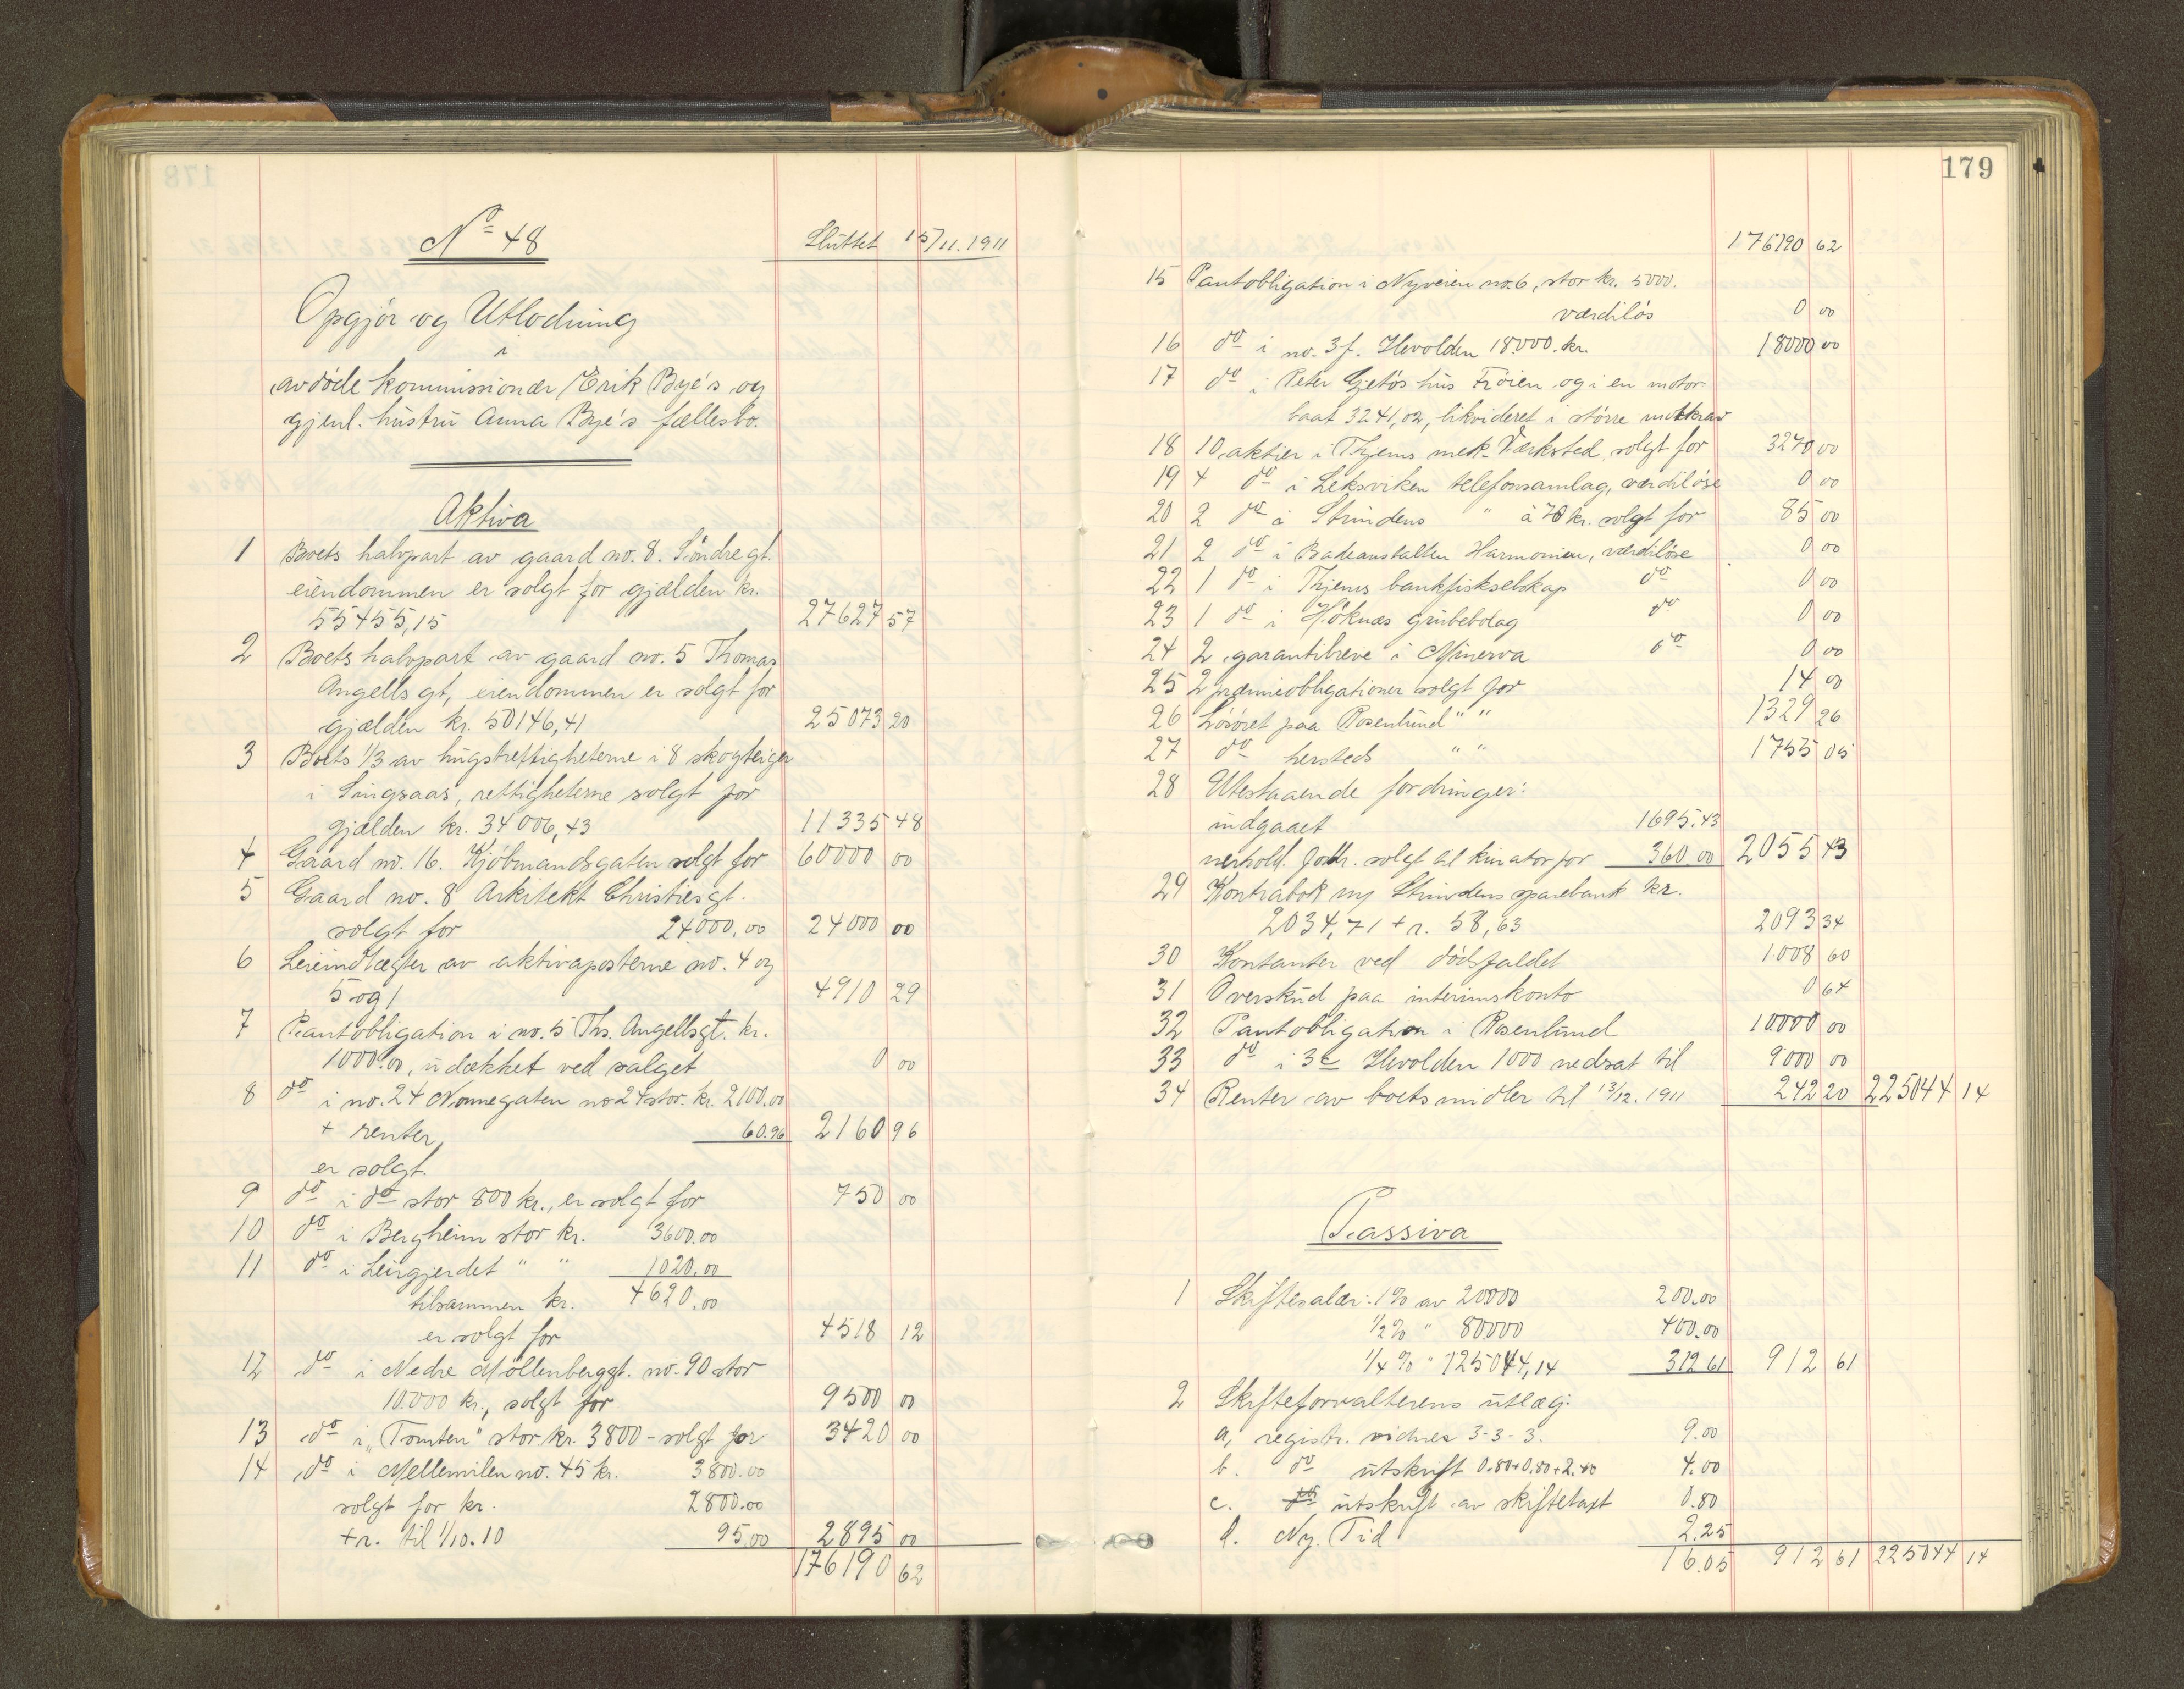 No 48
Sluttet 15/11.1911
Opgjør og Utlodning
i
avdøde kommissionær Erik Bye's og
gjenl. hustru Anna Bye's fællesbo.
Aktiva
1 Boets halvpart av gaard no. 8. Søndregt.
eiendommen er solgt for gjælden kr.
55455,15 27627 57
2 Boets halvpart av gaard no. 5 Thomas
Angells gt, eiendommen er solgt for
gjælden kr. 50146,41 25073 20
3 Boets 1/3 av hugstrettigheterne i 8 skogteiger
i Singsaas, rettigheterne solgt for
gjælden kr. 34006,43 11335 48
4 Gaard no. 16. Kjøbmandsgaten solgt for 60000 00
5 Gaard no. 8 Arkitekt Christiesgt.
solgt for 24000.00 24000 00
6 Leieindtægter av aktivaposterne no. 4 og
5 og 1 4910 29
7 Pantobligation i no. 5 Ths. Angellsgt. kr.
1000.00, udækket ved salget 0 00
8 do i no. 24 Nonnegaten no 24 stor. kr. 2100.00
+ renter 60.96 2160 96
er solgt.
9 do i do stor 800 kr., er solgt for 750 00
10 do i Bergheim stor kr. 3600.00
11 do i Leirgjerdet " " 1020.00
tilsammen kr. 4620.00
er solgt for 4518 12
12 do i Nedre Møllenberggt. no. 90 stor
10.000 kr., solgt for 9500 00
13 do i "Tomten" stor kr. 3800 - solgt for 3420 00
14 do i Mellemilen no. 45 kr. 3800.00
solgt for kr. 2800.00
+ r. til 1/10.10 95.00 2895 00
176190 62
179
176190 62
15 Pantobligation i Nyveien no. 6, stor kr. 5000.
værdiløs 0 00
16 do i no. 3 f. Ilevolden 18000. kr. 18000 00
17 do i Peter Gjetøs hus Frøien og i en motor
baat 3241,02, likvideret i større motkrav
18 10 aktier i Thjems mek. Værksted solgt for 3270 00
19 4 do i Leksviken telefonsamlag, værdiløse 0 00
20 2 do i Strindens " à 70 kr. solgt for 85 00
21 2 do i Badeanstalten Harmonien, værdiløse 0 00
22 1 do i Thjems bankfiskselskap do 0 00
23 1 do i Høknæs grubebolag do 0 00
24 2 garantibreve i Minerva do 0 00
25 2 præmieobligationer solgt for 14 00
26 Løsøret paa Rosenlund " " 1329 26
27 do hersteds " " 1755 05
28 Utestaaende fordringer:
indgaaet 1695.43
solgt til kurator for 360.00 2055 43
29 Kontrabok Strindens sparebank kr.
2034,71 + r. 58,63 2093 34
30 Kontanter ved dødsfaldet 1008 60
31 Overskud paa interimskonto 0 64
32 Pantobligation i Rosenlund 10000 00
33 do i 3 c Ilevolden 1000 nedsat til 9000 00
34 Renter av boets midler til 13/12. 1911 242 20 225044 14
Passiva
1 Skiftesalær: 1% av 20000 200.00
1/2% " 80000 400.00
1/4% " 125044,14 312 61 912 61
2 Skifteforvalterens utlæg:
a, registr. vidner 3-3-3. 9.00
b. do utskrift 0.80+0.80+2.40 4.00
c. utskrift av skiftetaxt 0.80
d. Ny. Tid 2.25
16.05 912 61 225044 14